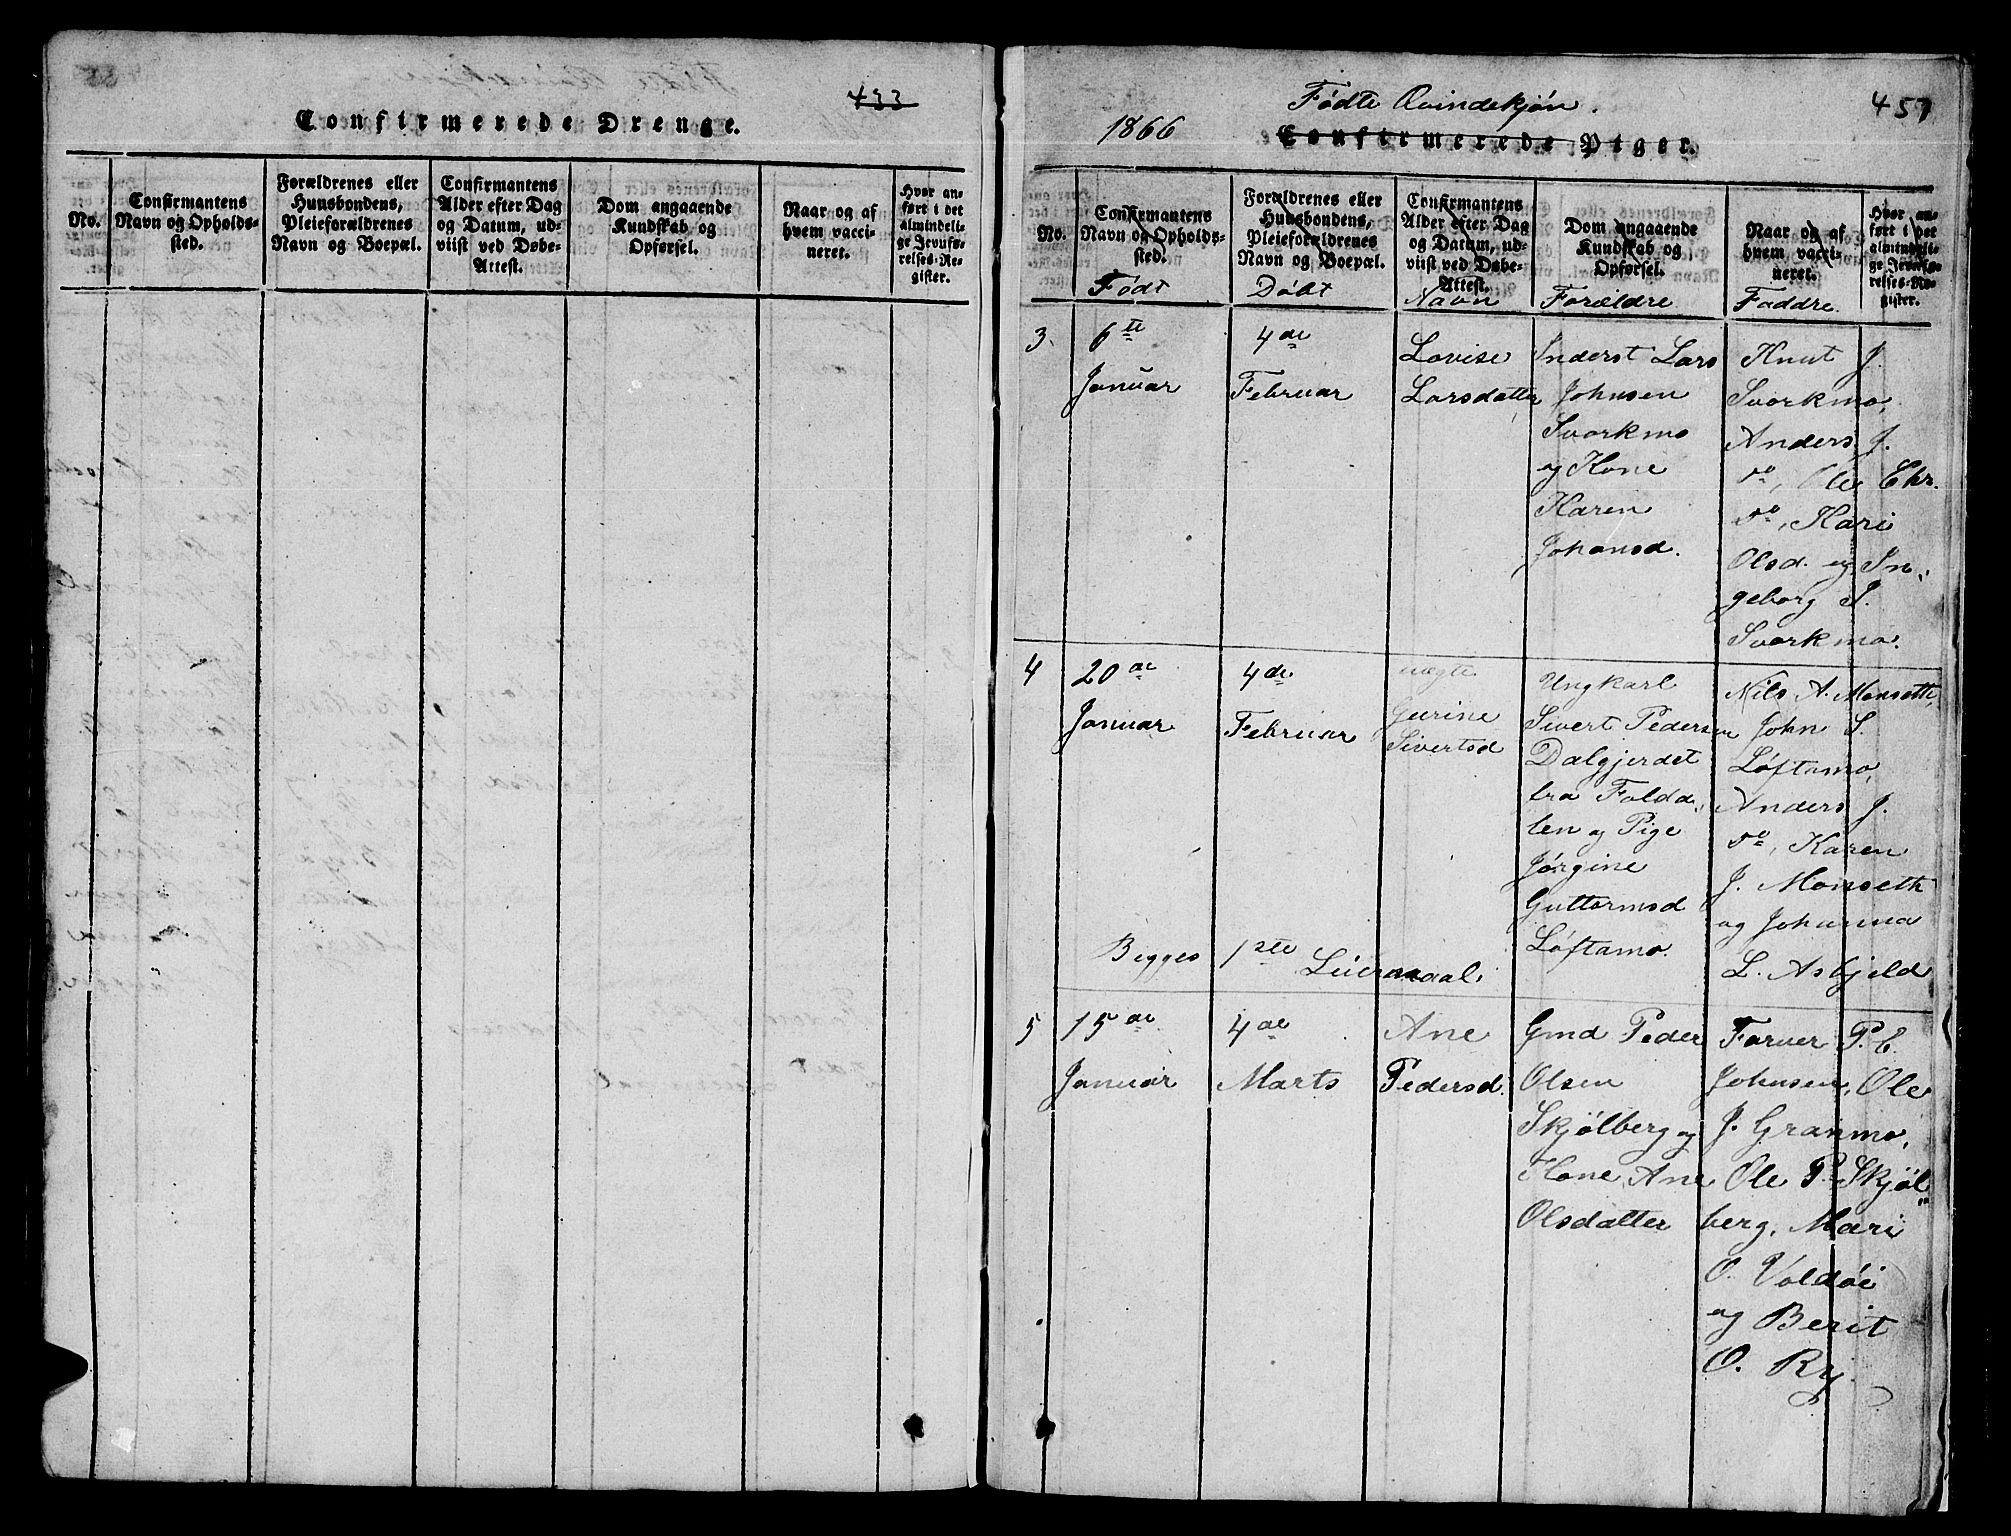 433
Confirmerede Drenge.
No.
Confirmantens
Navn og Opholds-
sted.
Forældrenes eller
Huusbondens,
Pleieforældrenes
Navn og Boepæl.
Confirmantens
Alder efter Dag
og Datum, ud-
viist ved Døbe-
Attest.
Dom angaaende
Kundskab og
Opførsel.
Naar og af
hvem vacci-
neret.
Hvor an-
ført i det
almindeli-
ge Jevnfø-
relses-Re-
gister.
Fødte Qvindekjøn.
457
1866
Confirmerede Piger.
No.
Confirmantens
Navn og Opholds-
sted.
Født
Forældrenes eller
Huusbondens,
Pleieforældrenes
Navn og Boepæl.
Døbt
Confirmantens
Alder efter Dag
og Datum, ud-
viist ved Døbe-
Attest.
Navn
Dom angaaende
Kundskab og
Opførsel.
Forældre
Naar og af
hvem vacci-
neret.
Faddre.
Hvor an-
ført i det
almindeli-
ge Jevnfø-
relses-Re-
gister.
3.
6te
Januar
4de
Februar
Lovise
Larsdatter
Inderst Lars
Johnsen
Svorkmo
og Kone
Karen
Johansd.
Knut J.
Svorkmo,
Anders J.
do, Ole Chr.
do, Kari
Olsd. og In-
geborg J.
Svorkmo.
4
20de
Januar
4de
Februar
uægte
Gurine
Sivertsd
Ungkarl
Sivert Pedersen
Dalgjerdet
fra Folda-
len og Pige
Jørgine
Guttormsd
Løftamo.
Nils A. Monseth,
John S.
Løftamo,
Anders J.
do, Karen
J. Monseth
og Johanna
L. Asbjeld
Begges 1ste Leiermaal.
5
15de
Januar
4de
Marts
Ane
Pedersd.
Gmd Peder
Olsen
Skjølberg og
Kone Ane
Olsdatter
Farver P. C.
Johnsen, Ole
J. Granmo,
Ole P. Skjøl-
berg, Mari
O. Voldøi
og Berit
O. Ry.